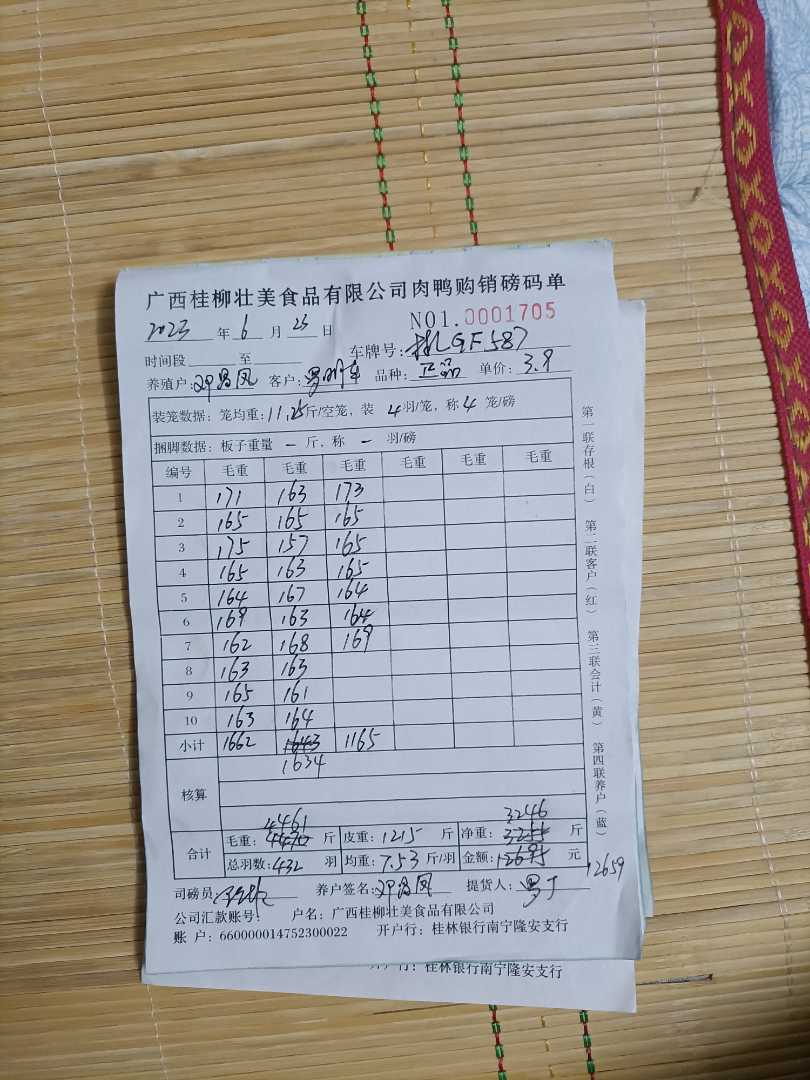 广西桂柳壮美食品有限公司肉鸭购销磅码单
2023 年 6 月 25 日 NO1.0001705
时间段 至 车牌号: GF587
养殖户: 邓 凤 客户: 品种: 正品 单价: 3.9
装笼数据: 笼均重: 11.25 斤/空笼, 装 4 羽/笼, 称 4 笼/磅
捆脚数据: 板子重量 — 斤, 称 — 羽/磅
编号 毛重 毛重 毛重 毛重 毛重 毛重
1 171 163 173
2 165 165 165
3 175 157 165
4 165 163 165
5 164 167 164
6 169 163 164
7 162 168 169
8 163 163
9 165 161
10 163 164
小计 1662 1643 1165
1634
核算
4461 3246
合计 毛重: 4470 斤 皮重: 1215 斤 净重: 3255 斤
总羽数: 432 羽 均重: 7.53 斤/羽 金额: 12695 元
12659
司磅员: 养户签名: 邓 凤 提货人:
公司汇款账号: 户名: 广西桂柳壮美食品有限公司
账 户: 660000014752300022 开户行: 桂林银行南宁隆安支行
开户行: 桂林银行南宁隆安支行
第一联存根(白) 第二联客户(红) 第三联会计(黄) 第四联养户(蓝)